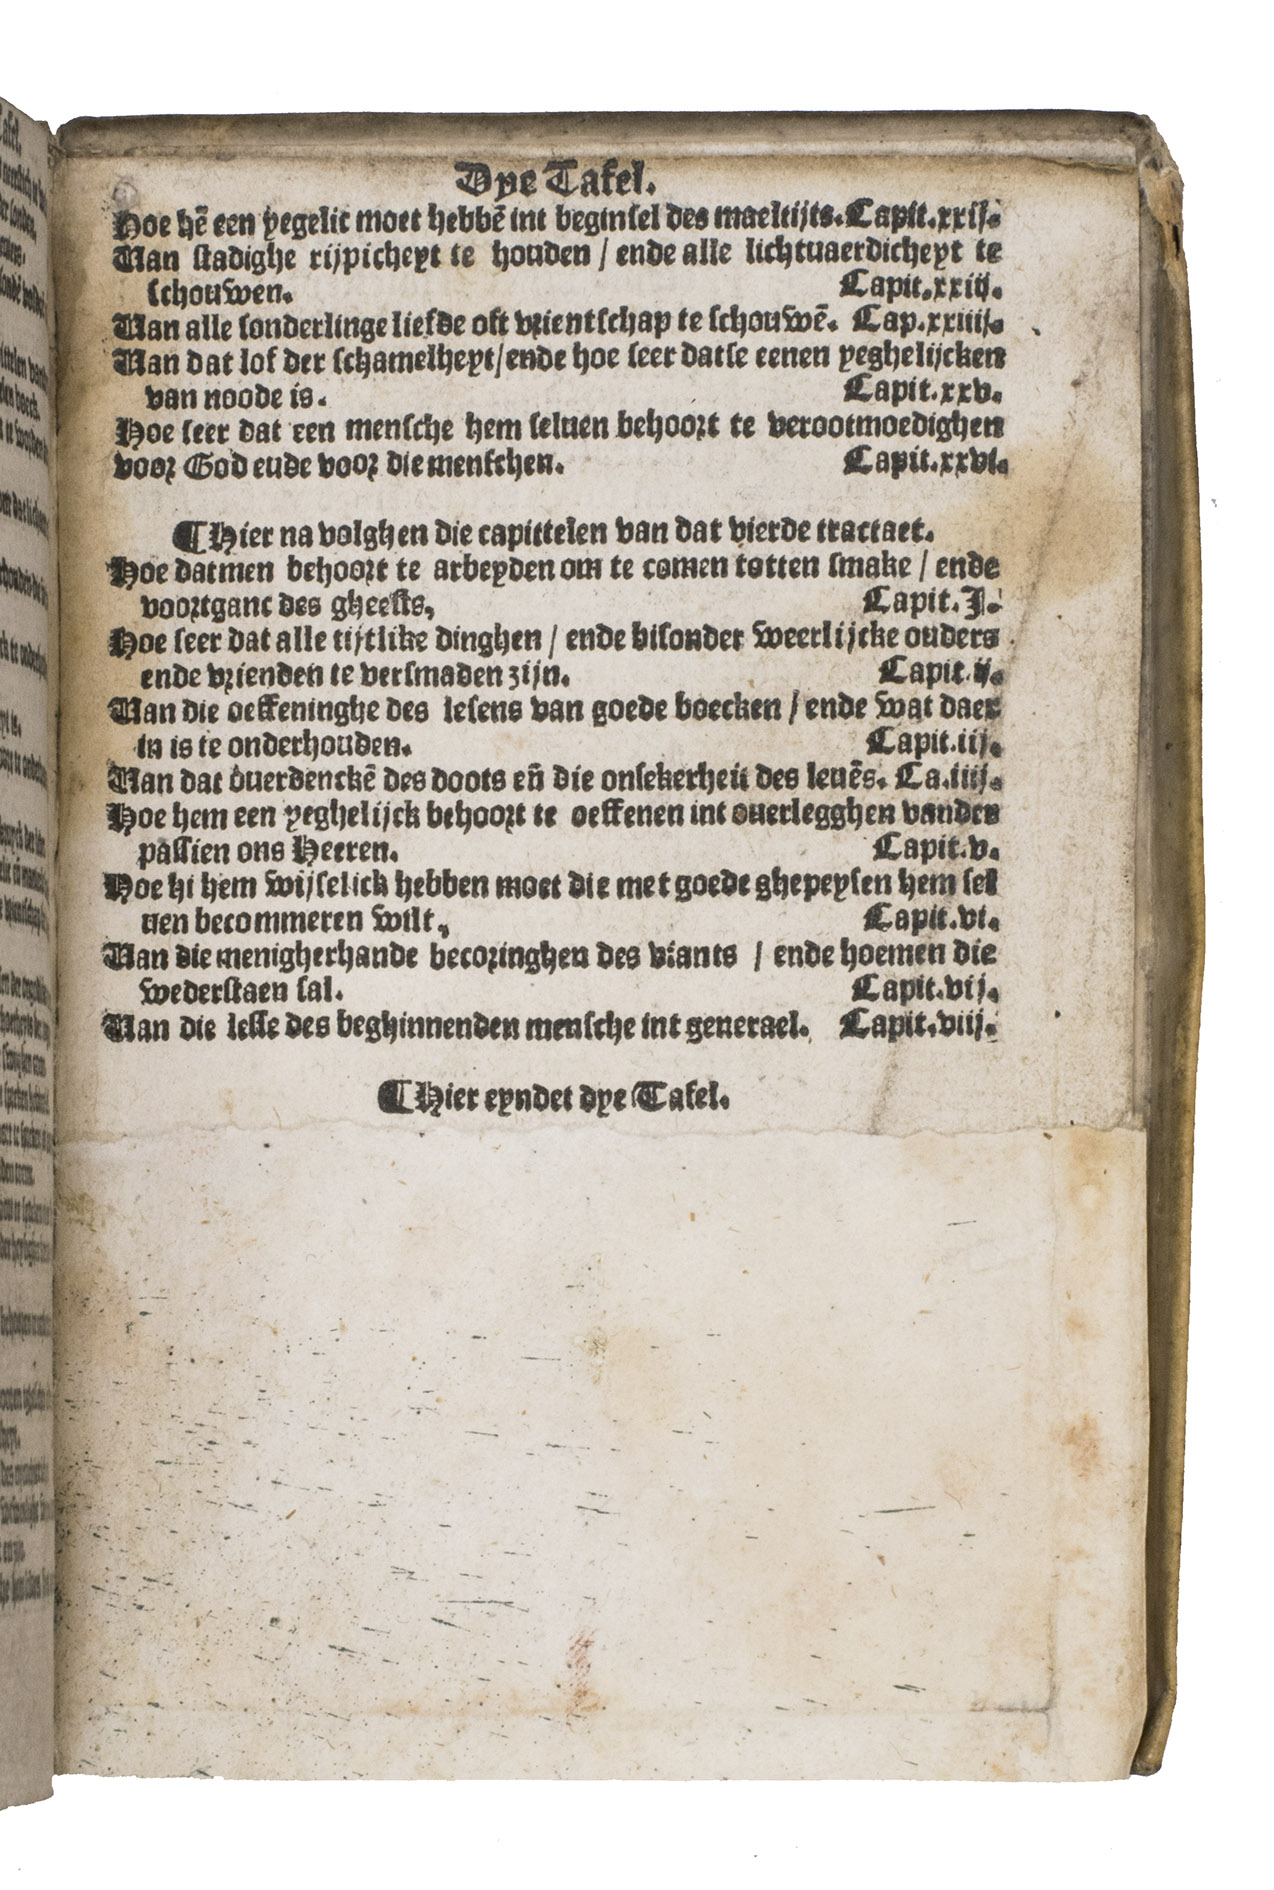 Dye Tafel.
Hoe hē een yegelic moet hebbē int beginsel des maeltijts. Capit.xxij.
Van stadighe rijpicheyt te houden / ende alle lichtuaerdicheyt te
schouwen. Capit.xxiij.
Van alle sonderlinge liefde oft vrientschap te schouwē. Cap.xxiiij.
Van dat lof der schamelheyt/ende hoe seer datse eenen yeghelijcken
van noode is. Capit.xxv.
Hoe seer dat een mensche hem seluen behoort te verootmoedighen
voor God eude voor die menschen. Capit.xxvi.
¶ Hier na volghen die capittelen van dat vierde tractaet.
Hoe datmen behoort te arbeyden om te comen totten smake / ende
voortganc des gheests, Capit.I.
Hoe seer dat alle tijtlike dinghen / ende bisonder weerlijcke ouders
ende vrienden te versmaden zijn. Capit.ij.
Van die oeffeninghe des lesens van goede boecken / ende wat daer
in is te onderhouden. Capit.iij.
Van dat ouerdenckē des doots eñ die onsekerheit des leuēs. Ca.iiij.
Hoe hem een yeghelijck behoort te oeffenen int ouerlegghen vander
passien ons Heeren. Capit.v.
Hoe hi hem wijselick hebben moet die met goede ghepeysen hem sel
uen becommeren wilt, Capit.vi.
Van die menigherhande becoringhen des viants / ende hoemen die
wederstaen sal. Capit.vij.
Van die lesse des beghinnenden mensche int generael. Capit.viij.
¶ Hier eyndet dye Tafel.